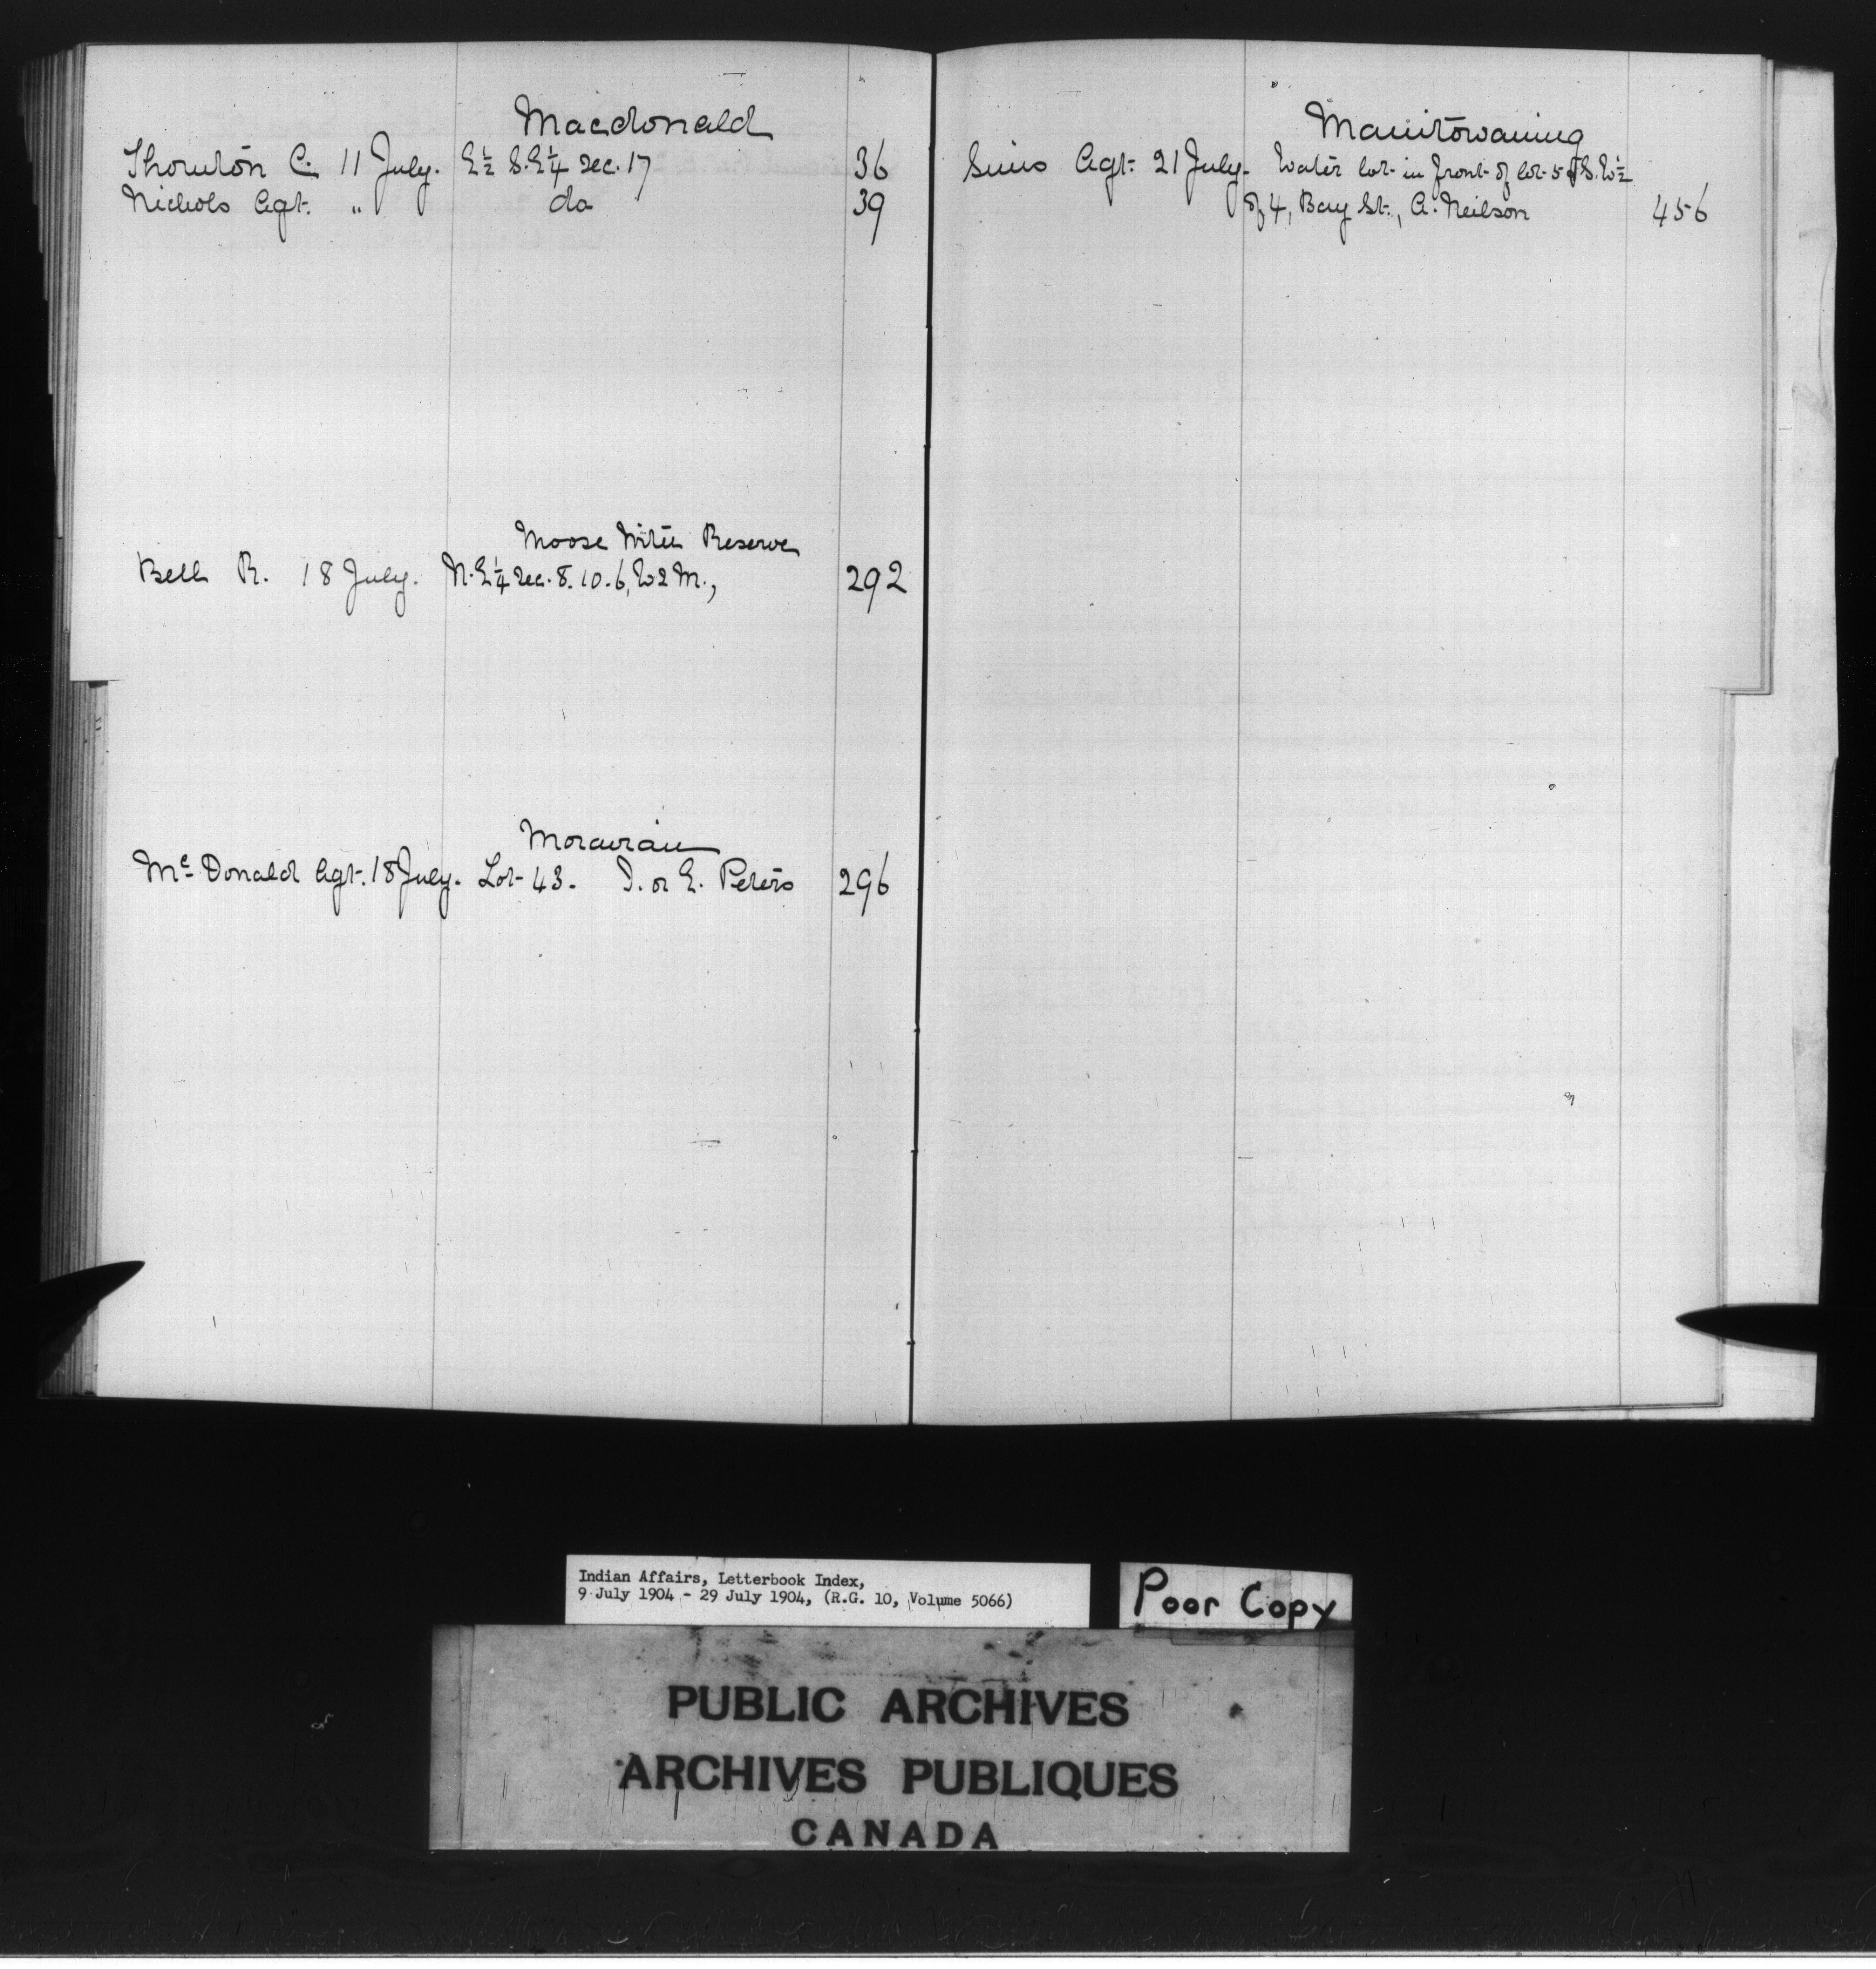 Macdonald
Thornton C. 11 July. E½ S.E¼ Sec. 17 36
Nichols Agt. " do 39
Moose Reserve
Bell R. 18 July. N.E¼ Sec. 8. 10. 6, W2M., 292
Moravian
Mc Donald Agt. 18 July. Lot 43. J. or E. Peters 296
Manitowaning
Sims Agt. 21 July. Water lot in front of lot 5 & S. W½
of 4, Bay St., A. Neilson 456
Indian Affairs, Letterbook Index,
9 July 1904 - 29 July 1904, (R.G. 10, Volume 5066)
Poor Copy
PUBLIC ARCHIVES
ARCHIVES PUBLIQUES
CANADA